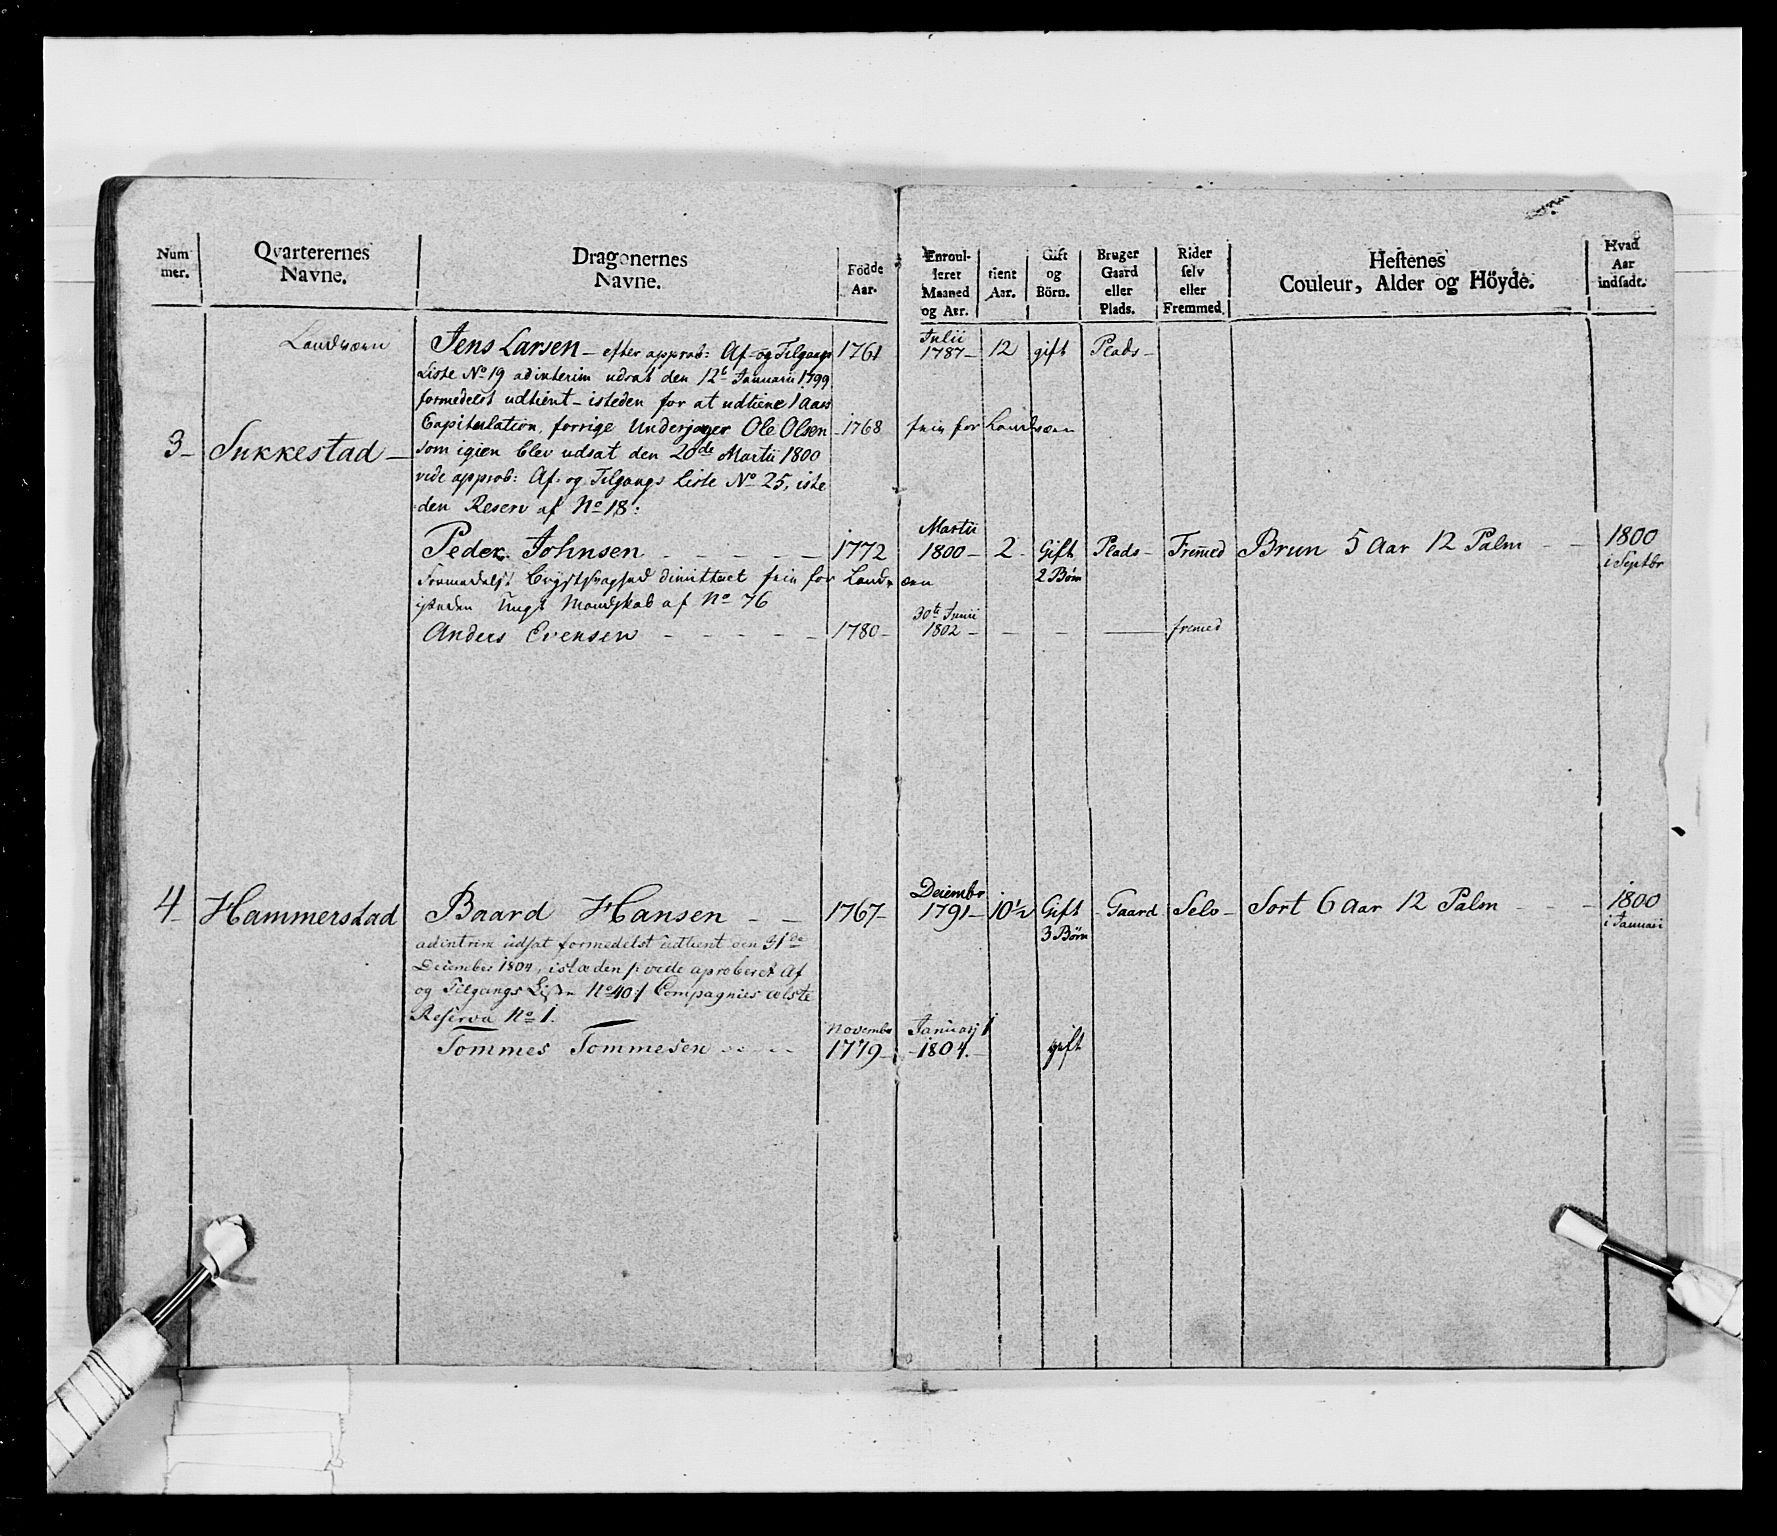 Num mer. Qvarterernes Navne. Dragonernes Navne. Födde Aar. Enroul- leret Maaned og Aar. tient Aar. Gift og Börn. Bruger Gaard eller Plads. Rider selv eller Fremmed. Hestenes Couleur, Alder og Höyde. Hvad Aar indsadt.
Landværn Jens Larsen – efter approb: Af- og Tilgangs 1761 Julii 1787 – 12 gift Plads –
Liste No 19 adinterim udsat den 12t Januarii 1799
formedelst udtient – isteden for at udtiene 1 Aars
Capitulation, forrige Underjæger Ole Olsen 1768 frie for Landværn
3 – Sukkestad – som igien blev udsat den 20de Martii 1800
vide approb: Af- og Tilgangs Liste No 25, iste
den Reserv af No 18:
Peder Johnsen – – – – 1772 Martii 1800 – 2 – Gift 2 Börn Plads – Fremed Brun 5 Aar 12 Palm – – 1800 i Septbr
Formedelst Brystsvaghed dimitteret frie for Landværn
isteden Ungt Mandskab af No 76
Anders Evensen – – – – – 1780 – 30te Junii 1802 – – – — fremed
4 – Hammerstad Baard Hansen – – 1767 – Decembr 1791 – 10½ Gift 3 Börn – Gaard Selv – Sort 6 Aar 12 Palm – – – 1800 i Januari
adintrim udsat formedelst udtient den 31de
December 1804, istæden /: vide aproberet Af
og Tilgangs Listen No 40 :/ Compagnies ælste
Reserva No 1.
Tommes Tommesen – – – – Novembr 1779 – Januarj 1804. – gift